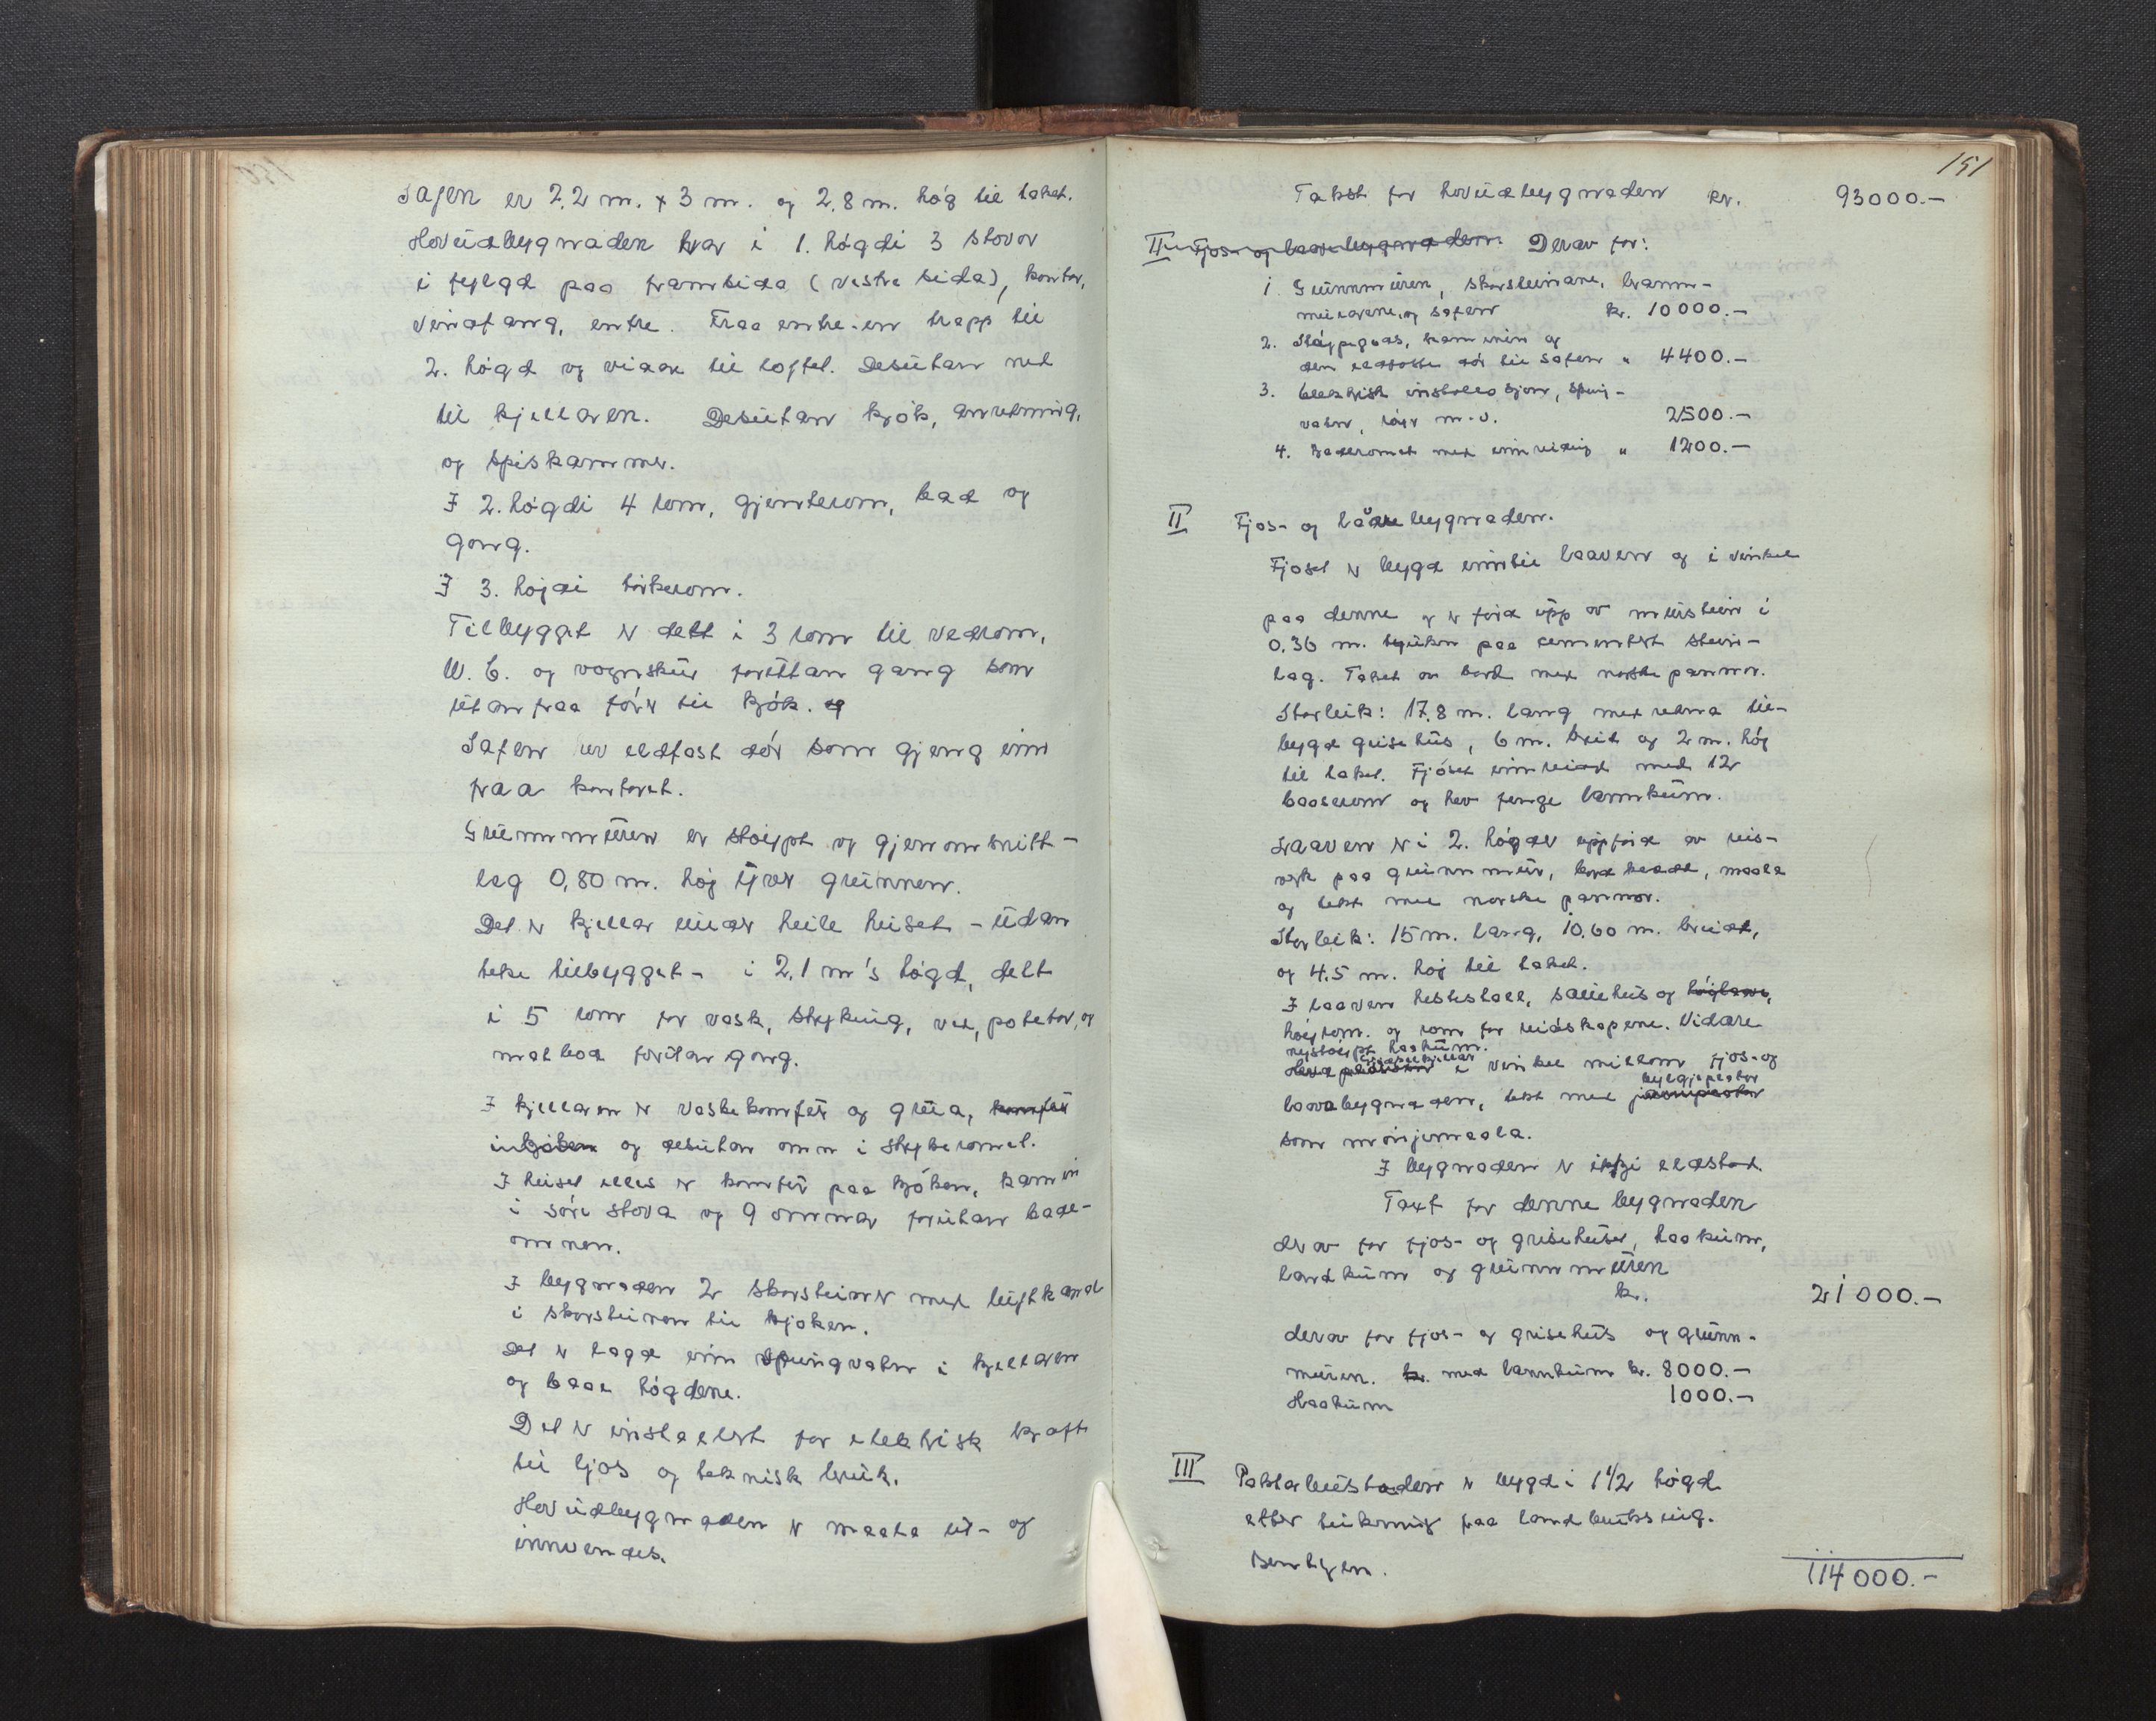 Safen er 2,2 m. x 3 m. og 2,8 m. høg til taket.
Hovudbygnaden hev i 1. høgdi 3 stovor
i fylgd paa framsida (vestre sida), kontor,
vindfang, entre. Fraa entre-en trapp til
2. høgd og vidare til loftet. Desutan ned
til kjellaren. Desutan kjøk, anretning,
og spiskammer.
I 2. høgdi 4 rom, gjenterom, bad og
gong.
I 3. høgdi tørkerom.
Tilbygget er delt i 3 rom til vedrom,
W.C. og vognskur foruttan gang som
utanfraa fører til kjøk. og
Safen hev eldfast dør som gjeng inn
fraa kontoret.
Grunnmuren er støypt og gjenomsnitt-
leg 0,80 m. høg yver grunnen.
Det er kjellar under heile huset - udan
teke tilbygget - i 2,1 m's høgd, delt
i 5 rom for vask, stryking, ved, potetor, og
matbod forutan gong.
I kjellaren er vaskekomfyr og grua, komfyr
og desutan omn i strykeromet.
I huset elles er komfyr paa kjøken, kamin
i søre stova og 9 omnar forutan bade-
omnen.
I bygnaden 2 skorsteinar med luftkanal
i skorsteinen til kjøken.
Det er lagd inn springvatn i kjellaren
og baae høgdene.
Det er installert for elektrisk kraft
til ljos og teknisk bruk.
Hovudbygnaden er maala ut- og
innvendes.
151
Takst for hovudbygnaden kr. 93000.-
II Fjos- og laavebygnaden. Derav for:
1 Grunnmuren, skorsteinane, brann-
murane og safen kr. 10000.-
2. Støypegods, kaminin og
den eldfaste dør til safen " 4400.-
3. Elektrisk installasjon, spring-
vatn, røyr m.v. 2500.-
4. Baderomet med innreiding " 1200.-
II Fjos- og låvebygnaden.
Fjoset er bygd inntil laaven og i vinkel
paa denne og er førd upp av murstein i
0,36 m. tjukn paa cementert stein-
lag. Taket av bord med norske pannor.
Storleik: 17,8 m. lang med retna til-
bygd grisehus, 6 m. breid og 2 m. høg
til taket. Fjøset innreidd med 12
baaserom og hev tvo landkum.
Laaven er i 2. høgder uppførd av reis-
verk paa grunnmur, bordkledd, maala
og tekt med norske pannor.
Storleik: 15 m. lang, 10,60 m. breidt,
og 4,5 m. høg til taket.
I laaven hestestall, sauehus og høylaave,
høyrom. og rom for reidskapene. Vidare
nystøypt haakum.
i vinkel millom fjos- og
bylgjeplator
laavebygnaden, tekt med jarnplator
som er mønjemaala.
I bygnaden er ikkje eldstad.
Taxt for denne bygnaden
derav for fjos- og grisehuset, haakum,
landkum og grunnmuren
kr. 21000.-
derav for fjos- og grisehus og grunn-
muren. kr. med landkum kr. 8000.-
Haakum 1000.-
III Paktarbustaden er bygd i 1 1/2 høgd
etter teikning fraa landbruksing.
114000.-